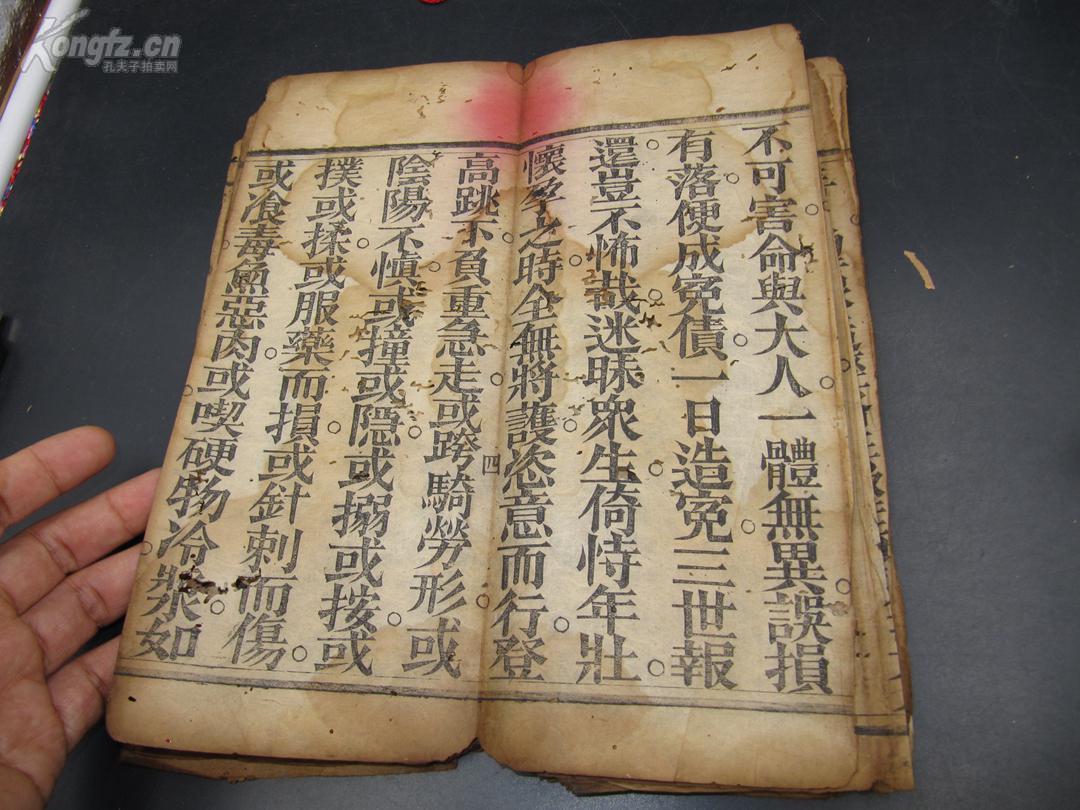 不可害命與大人一體無異誤損
有落便成冤債一日造冤三世報
還豈不怖哉迷昧衆生倚恃年壯
懷孕之時全無將護恣意而行登
四
高跳下負重急走或跨騎勞形或
陰陽不慎或撞或隱或搦或按或
撲或揉或服藥而損或針刺而傷
或飡毒魚惡肉或喫硬物冷漿如
Kongfz.cn
孔夫子拍卖网